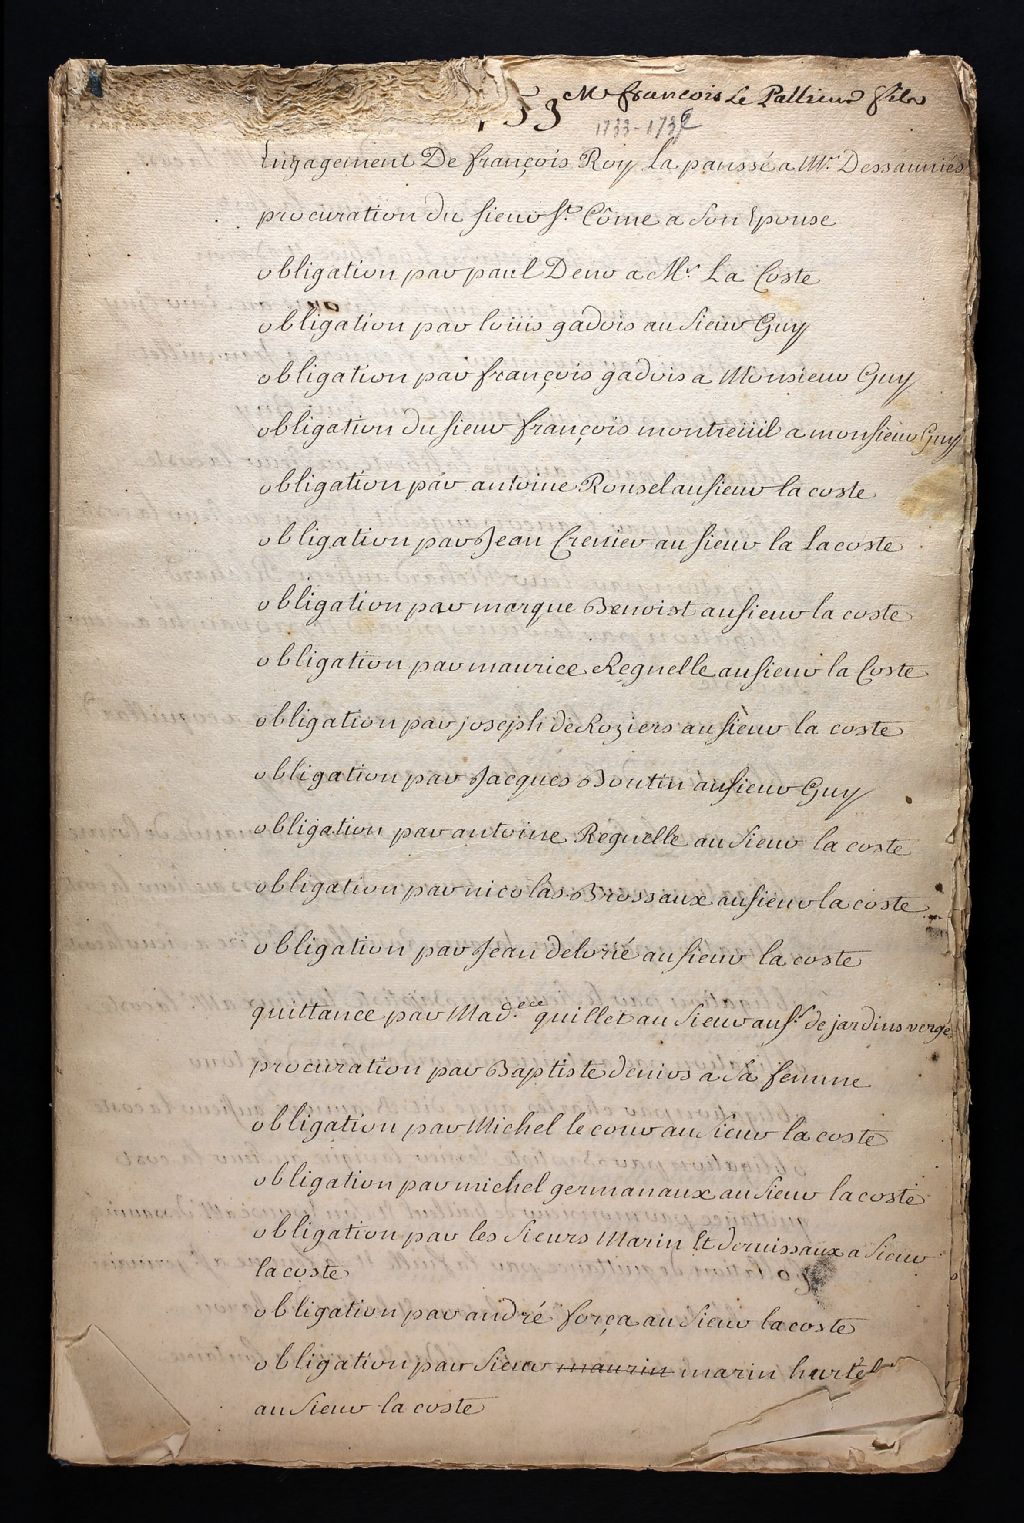 Me françois Le Pallieur fils
1733-1739
Engagement De françois Roy La panssé a Mr. Dessauniés
procuration du sieur St. Côme a son Epouse
obligation par paul Deno a Mr. La Coste
obligation par louis gadois au sieur Guy
obligation par françois gadois a Monsieur Guy
obligation du sieur françois montreüil a monsieur Guy
obligation par antoine Rousel au sieur la coste
obligation par Jean Crenier au sieur la Lacoste
obligation par marque Benoist au sieur la coste
obligation par maurice Regnelle au sieur la Coste
obligation par joseph deRoziers au sieur la coste
obligation par Jacques Boutin au sieur Guy
obligation par antoine Regnelle au sieur la coste
obligation par nicolas Brossaux au sieur la coste
obligation par Jean delorié au sieur la coste
quittance par Mad.ece quillet au sieur de jardins
procuration par Baptiste denios a sa femme
obligation par Michel le cour au sieur la coste
obligation par michel germanaux au sieur lacoste
obligation par les sieurs Marin Et deruissaux a sieur
lacoste
obligation par andré força au sieur lacoste
obligation par sieur maurin marin hurtel
au sieur la coste